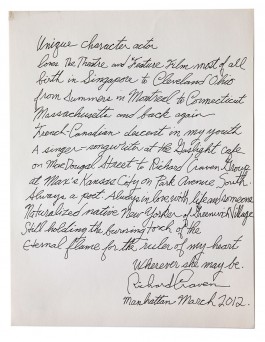 Unique character actor
loves The Theatre and Feature Film most of all
birth in Singapore to Cleveland Ohio
from Summers in Montreal to Connecticut
Massachusetts and back again
French-Canadian descent in my youth
A singer-songwriter at the Gaslight Cafe
on MacDougal Street to Richard Craven Group
at Max's Kansas City on Park Avenue South
Always a poet Always in love with life and someone
Naturalized/native New-Yorker of Greenwich Village
Still holding the burning torch of the
Eternal flame for the ruler of my heart
Wherever she may be.
Richard Craven
Manhattan March 2012.